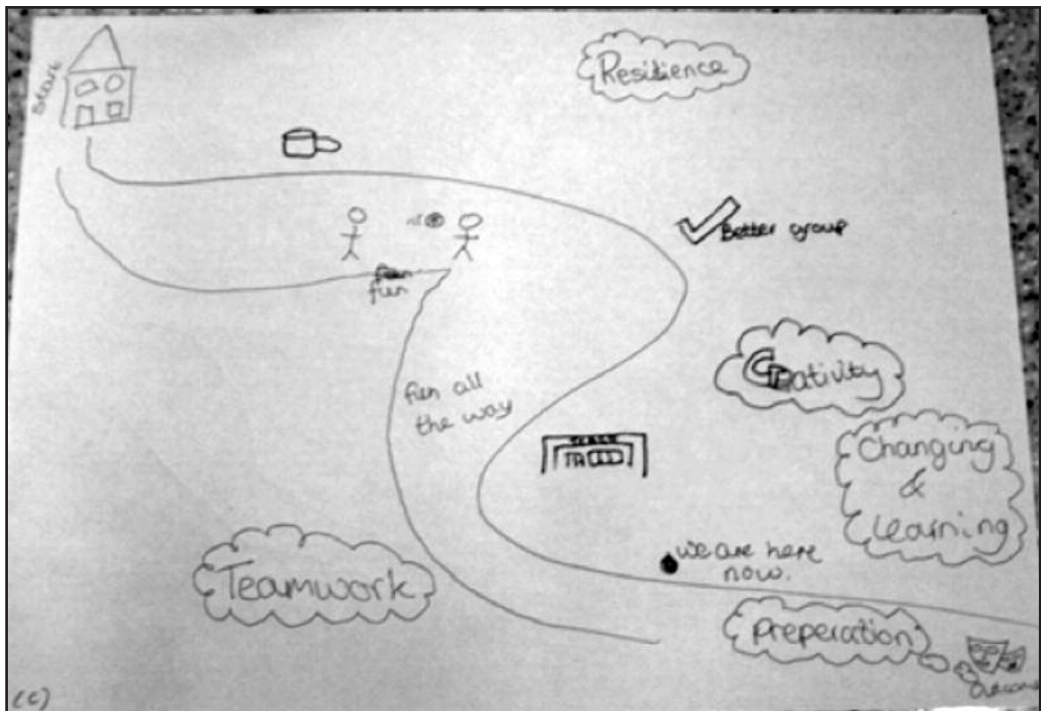 Start
Resilience
Better group
fun
fun all
the way
Creativity
Changing
&
Learning
we are here
now.
Teamwork
Preperation
Outcome
(c)